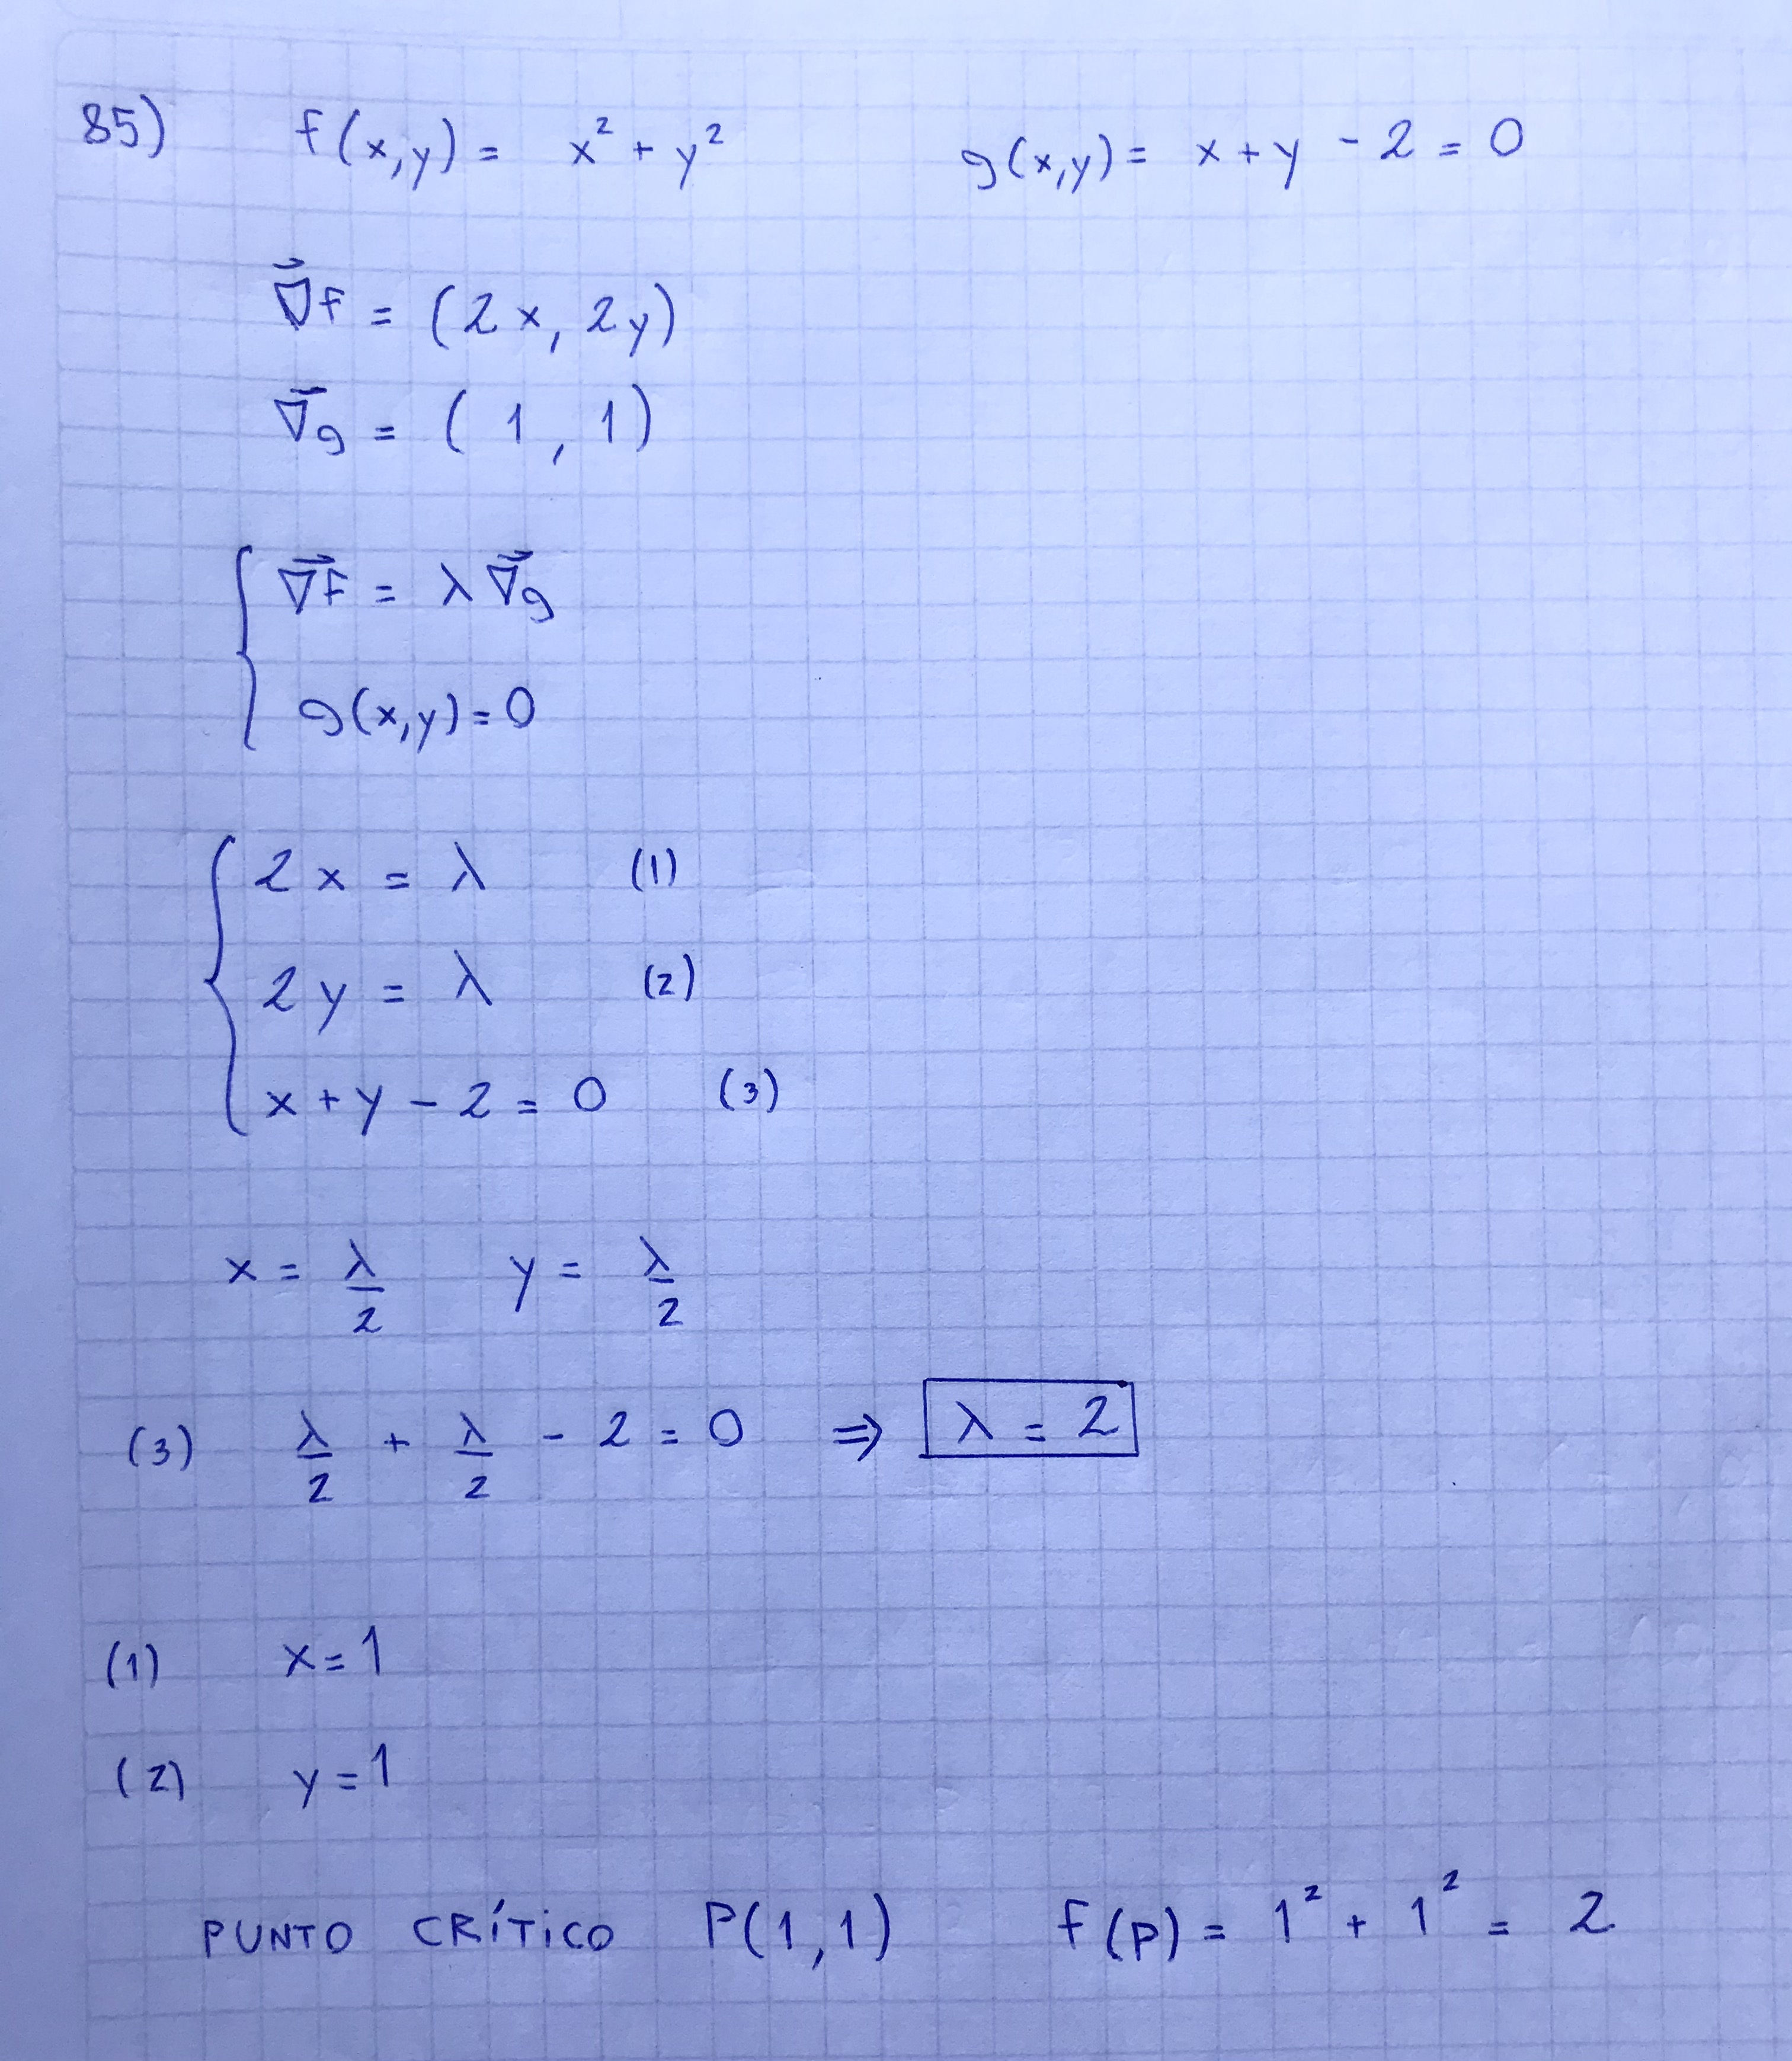 85) f(x,y) = x² + y² g(x,y) = x + y - 2 = 0
∇⃗f = (2x, 2y)
∇⃗g = (1, 1)
{ ∇⃗f = λ ∇⃗g
g(x,y) = 0
{ 2x = λ (1)
2y = λ (2)
x + y - 2 = 0 (3)
x = λ/2 y = λ/2
(3) λ/2 + λ/2 - 2 = 0 ⇒ λ = 2
(1) x = 1
(2) y = 1
PUNTO CRÍTICO P(1,1) f(P) = 1² + 1² = 2